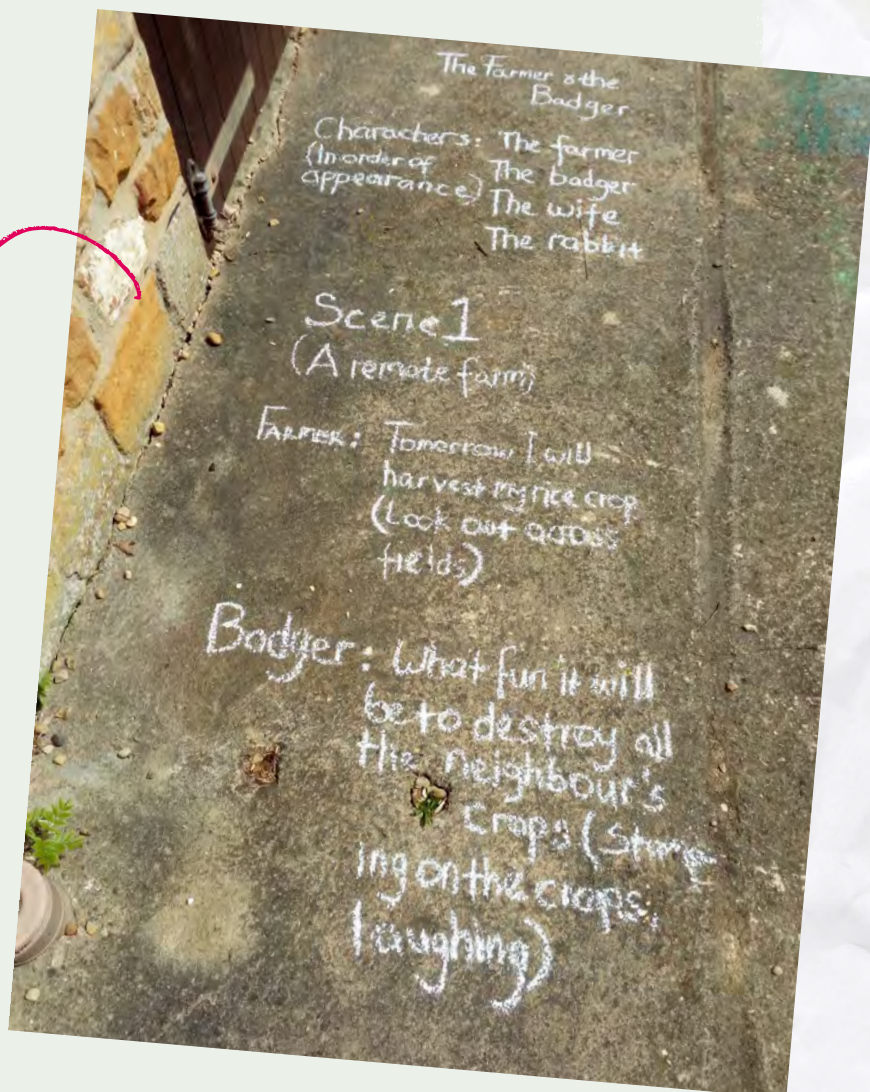 The Farmer & the
Badger
Charachers: The farmer
(In order of The badger
appearance) The wife
The rabbit
Scene 1
(A remote farm)
FARMER: Tomorrow I will
harvest my rice crop
(Look out across
fields)
Badger: What fun it will
be to destroy all
the neighbour's
crops (Stomp-
ing on the crops,
laughing)